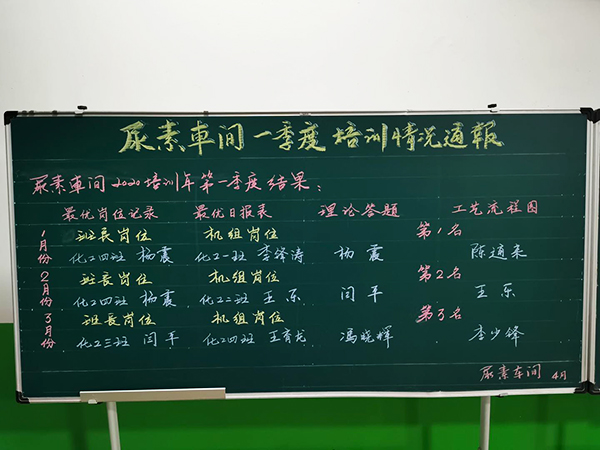 尿素車间一季度培训情况通報
尿素車间2020培训年第一季度结果：
最优岗位记录 最优日报表 理论答题 工艺流程图
1月份 班長岗位 机组岗位 第1名
化工四班 杨震 化工一班 李泽涛 杨震 陈通来
2月份 班長岗位 机组岗位 第2名
化工四班 杨震 化工二班 王东 闫平 王东
3月份 班長岗位 机组岗位 第3名
化工三班 闫平 化工四班 王育龙 冯晓辉 李少锋
尿素车间 4月